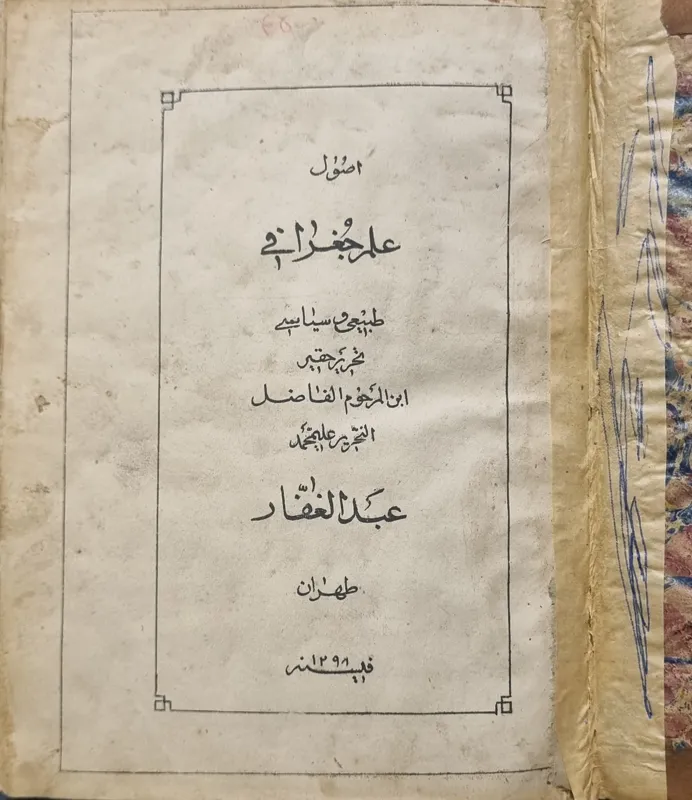 اصُوُل
علم جُغرافی
طبیعی و سیاسی
تحریر حقیر
ابن المرحوم الفاضل
النحریر علیمحمد
عَبدالغفّار
طهران
فی سنه ۱۲۹۸